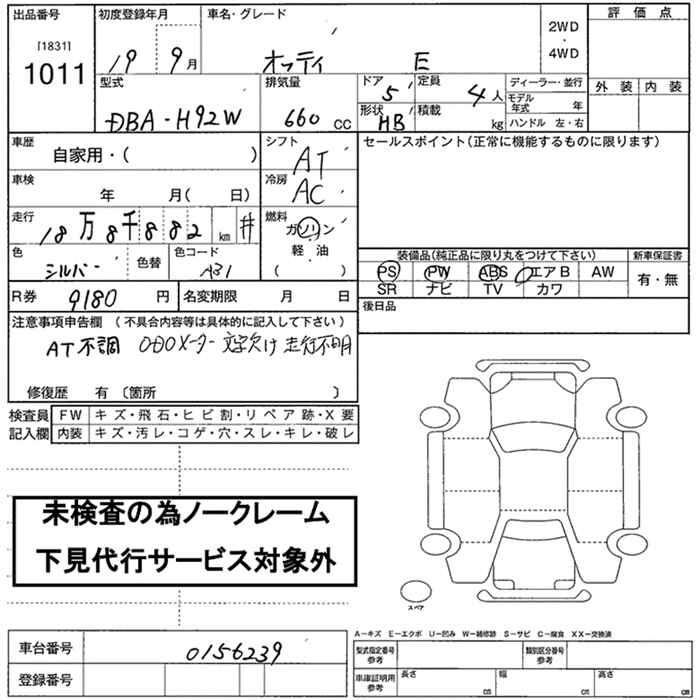 出品番号
[1831]
1011
初度登録年月
19 9月
車名・グレード
オッティ E
2WD
・
4WD
評価点
外装 内装
型式
DBA-H92W
排気量
660 CC
ドア 5
形状 HB
定員 4人
積載 kg
ディーラー・並行
モデル年式 年
ハンドル 左・右
車歴
自家用・( )
シフト
AT
セールスポイント(正常に機能するものに限ります)
車検
年 月( 日)
冷房
AC
走行
18万8千882km #
燃料
ガソリン
軽・油
( )
色
シルバー 色替
色コード
A31
装備品(純正品に限り丸をつけて下さい)
PS PW ABS エアB AW
SR ナビ TV カワ
新車保証書
有・無
R券 9180円
名変期限 月 日
後日品
注意事項申告欄 (不具合内容等は具体的に記入して下さい)
AT不調 ODOメーター文字欠け 走行不明
修復歴 有 〔箇所 〕
検査員記入欄
FW キズ・飛石・ヒビ割・リペア跡・X要
内装 キズ・汚レ・コゲ・穴・スレ・キレ・破レ
未検査の為ノークレーム
下見代行サービス対象外
スペア
車台番号 0156239
登録番号
A−キズ E−エクボ U−凹み W−補修跡 S−サビ C−腐食 XX−交換済
型式指定番号
参考
類別区分番号
参考
車庫証明用
参考
長さ cm
幅 cm
高さ cm